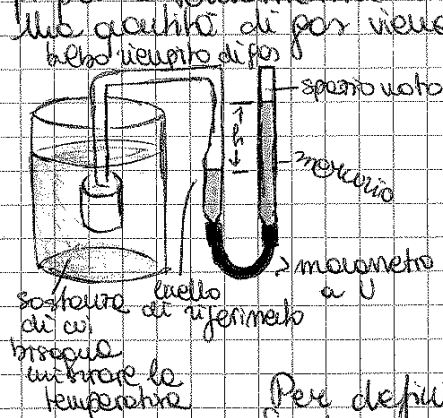 Una quantità di gas viene
bulbo riempito di gas
spazio vuoto
h
mercurio
manometro
a U
livello
di riferimento
sostanza
di cui
bisogna
misurare la
temperatura
Per defin